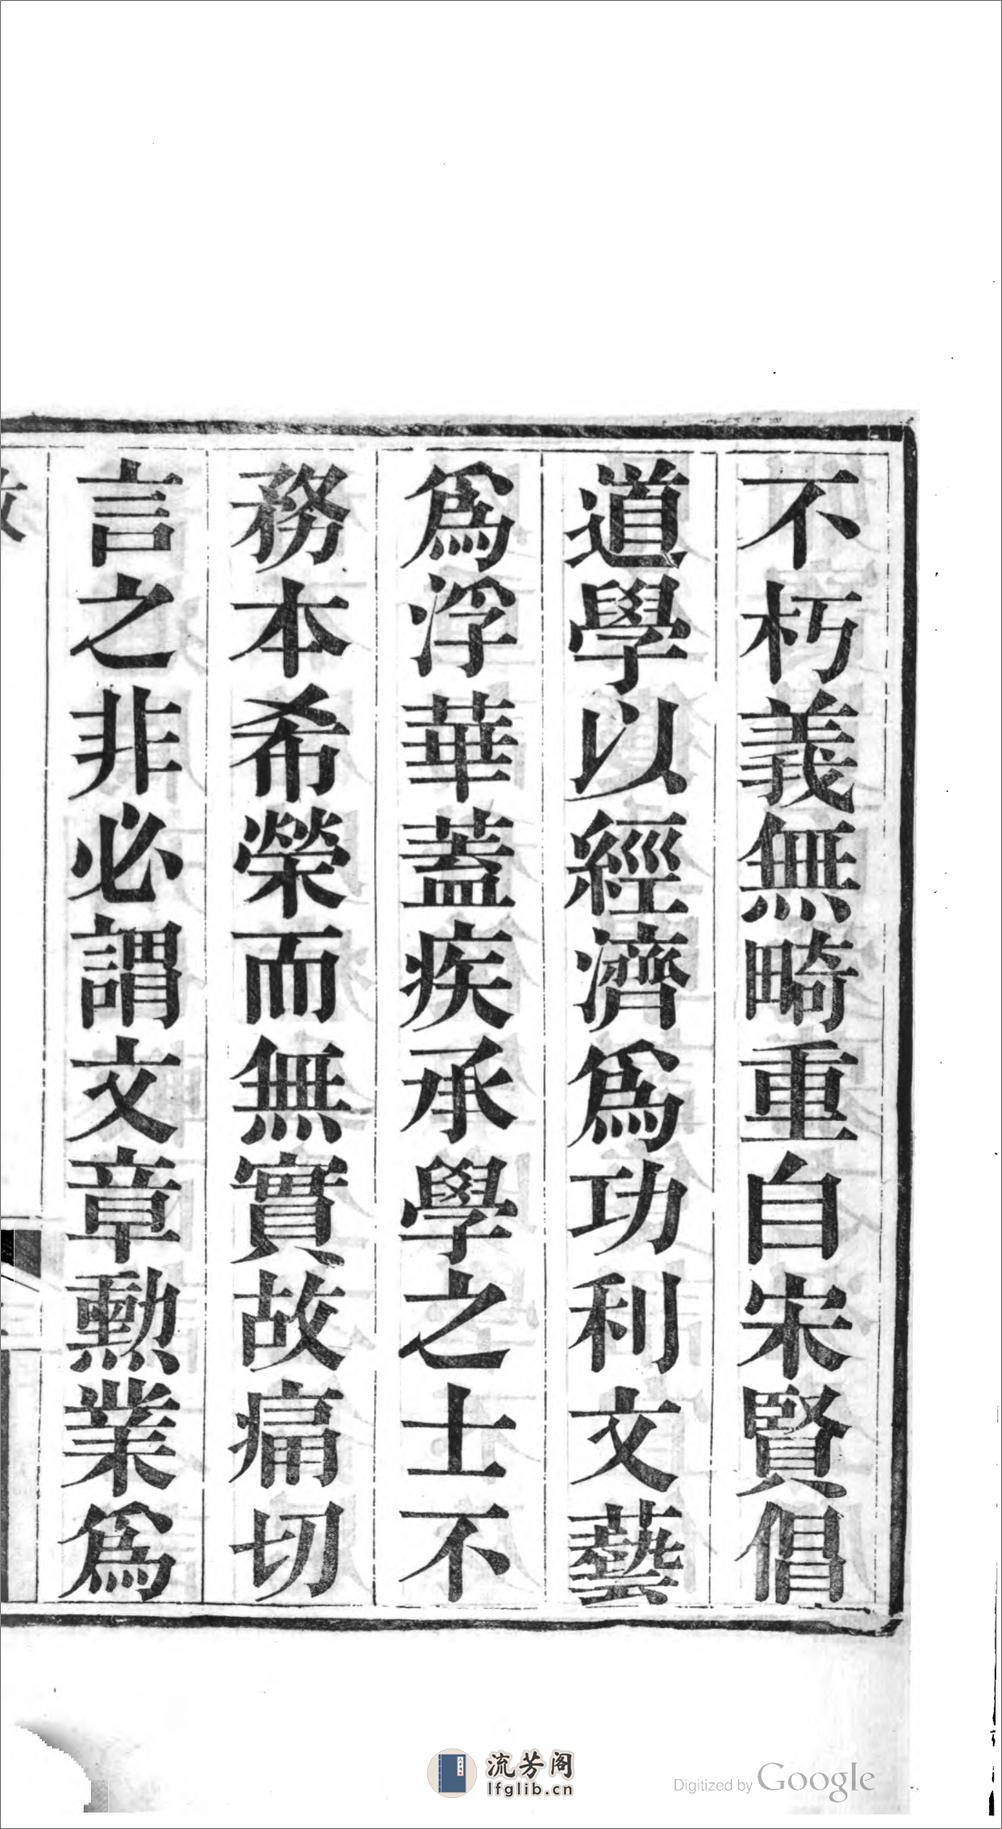 不朽義無畸重自宋賢倡
道學以經濟爲功利文藝
爲浮華蓋疾承學之士不
務本希榮而無實故痛切
言之非必謂文章勲業爲
流芳阁
lfglib.cn
Digitized by Google